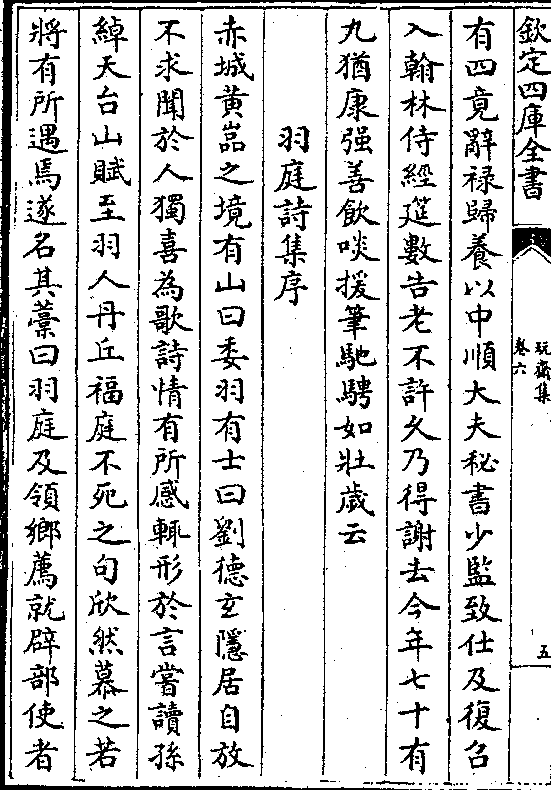 欽定四庫全書
玩齋集
卷六
五
有四竟辭禄歸養以中順大夫秘書少監致仕及復召
入翰林侍經筵數告老不許久乃得謝去今年七十有
九猶康强善飲啖援筆馳騁如壯歲云
羽庭詩集序
赤城黄嵓之境有山曰委羽有士曰劉德玄隱居自放
不求聞於人獨喜為歌詩情有所感輙形於言嘗讀孫
綽天台山賦至羽人丹丘福庭不死之句欣然慕之若
將有所遇焉遂名其藁曰羽庭及領鄉薦就辟部使者